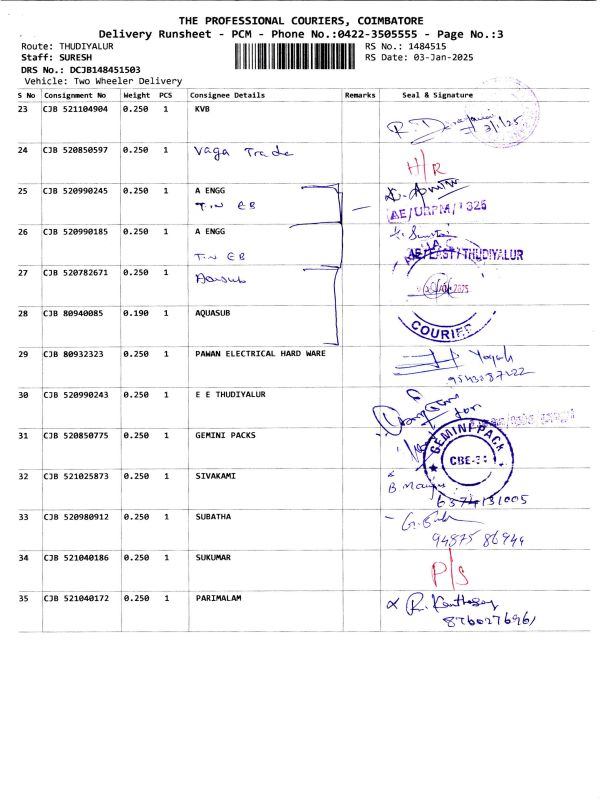 THE PROFESSIONAL COURIERS, COIMBATORE
Delivery Runsheet - PCM - Phone No.:0422-3505555 - Page No.:3
Route: THUDIYALUR
RS No.: 1484515
Staff: SURESH
RS Date: 03-Jan-2025
DRS No.: DCJB148451503
Vehicle: Two Wheeler Delivery
S No Consignment No Weight PCS Consignee Details Remarks Seal & Signature
23 CJB 521104904 0.250 1 KVB
3/1/25
24 CJB 520850597 0.250 1 Vaga Trade
H/R
25 CJB 520990245 0.250 1 A ENGG
T.N EB
26 CJB 520990185 0.250 1 A ENGG
T.N EB
AE/EAST/THUDIYALUR
27 CJB 520782671 0.250 1
28 CJB 80940085 0.190 1 AQUASUB
COURIER
29 CJB 80932323 0.250 1 PAWAN ELECTRICAL HARD WARE
Yogesh
30 CJB 520990243 0.250 1 E E THUDIYALUR
for
31 CJB 520850775 0.250 1 GEMINI PACKS
GEMINI PACK
32 CJB 521025873 0.250 1 SIVAKAMI
6374131005
33 CJB 520980912 0.250 1 SUBATHA
94875 86944
34 CJB 521040186 0.250 1 SUKUMAR
P/S
35 CJB 521040172 0.250 1 PARIMALAM
8760276961